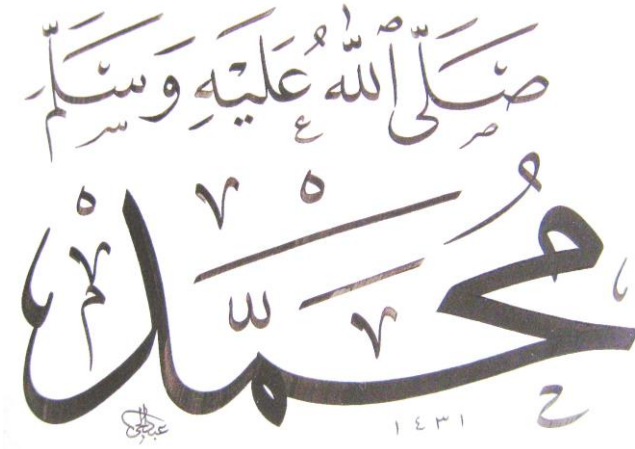 صَلَّى ٱللَّهُ عَلَيْهِ وَسَلَّمَ
مُحَمَّدْ
١٤٣١